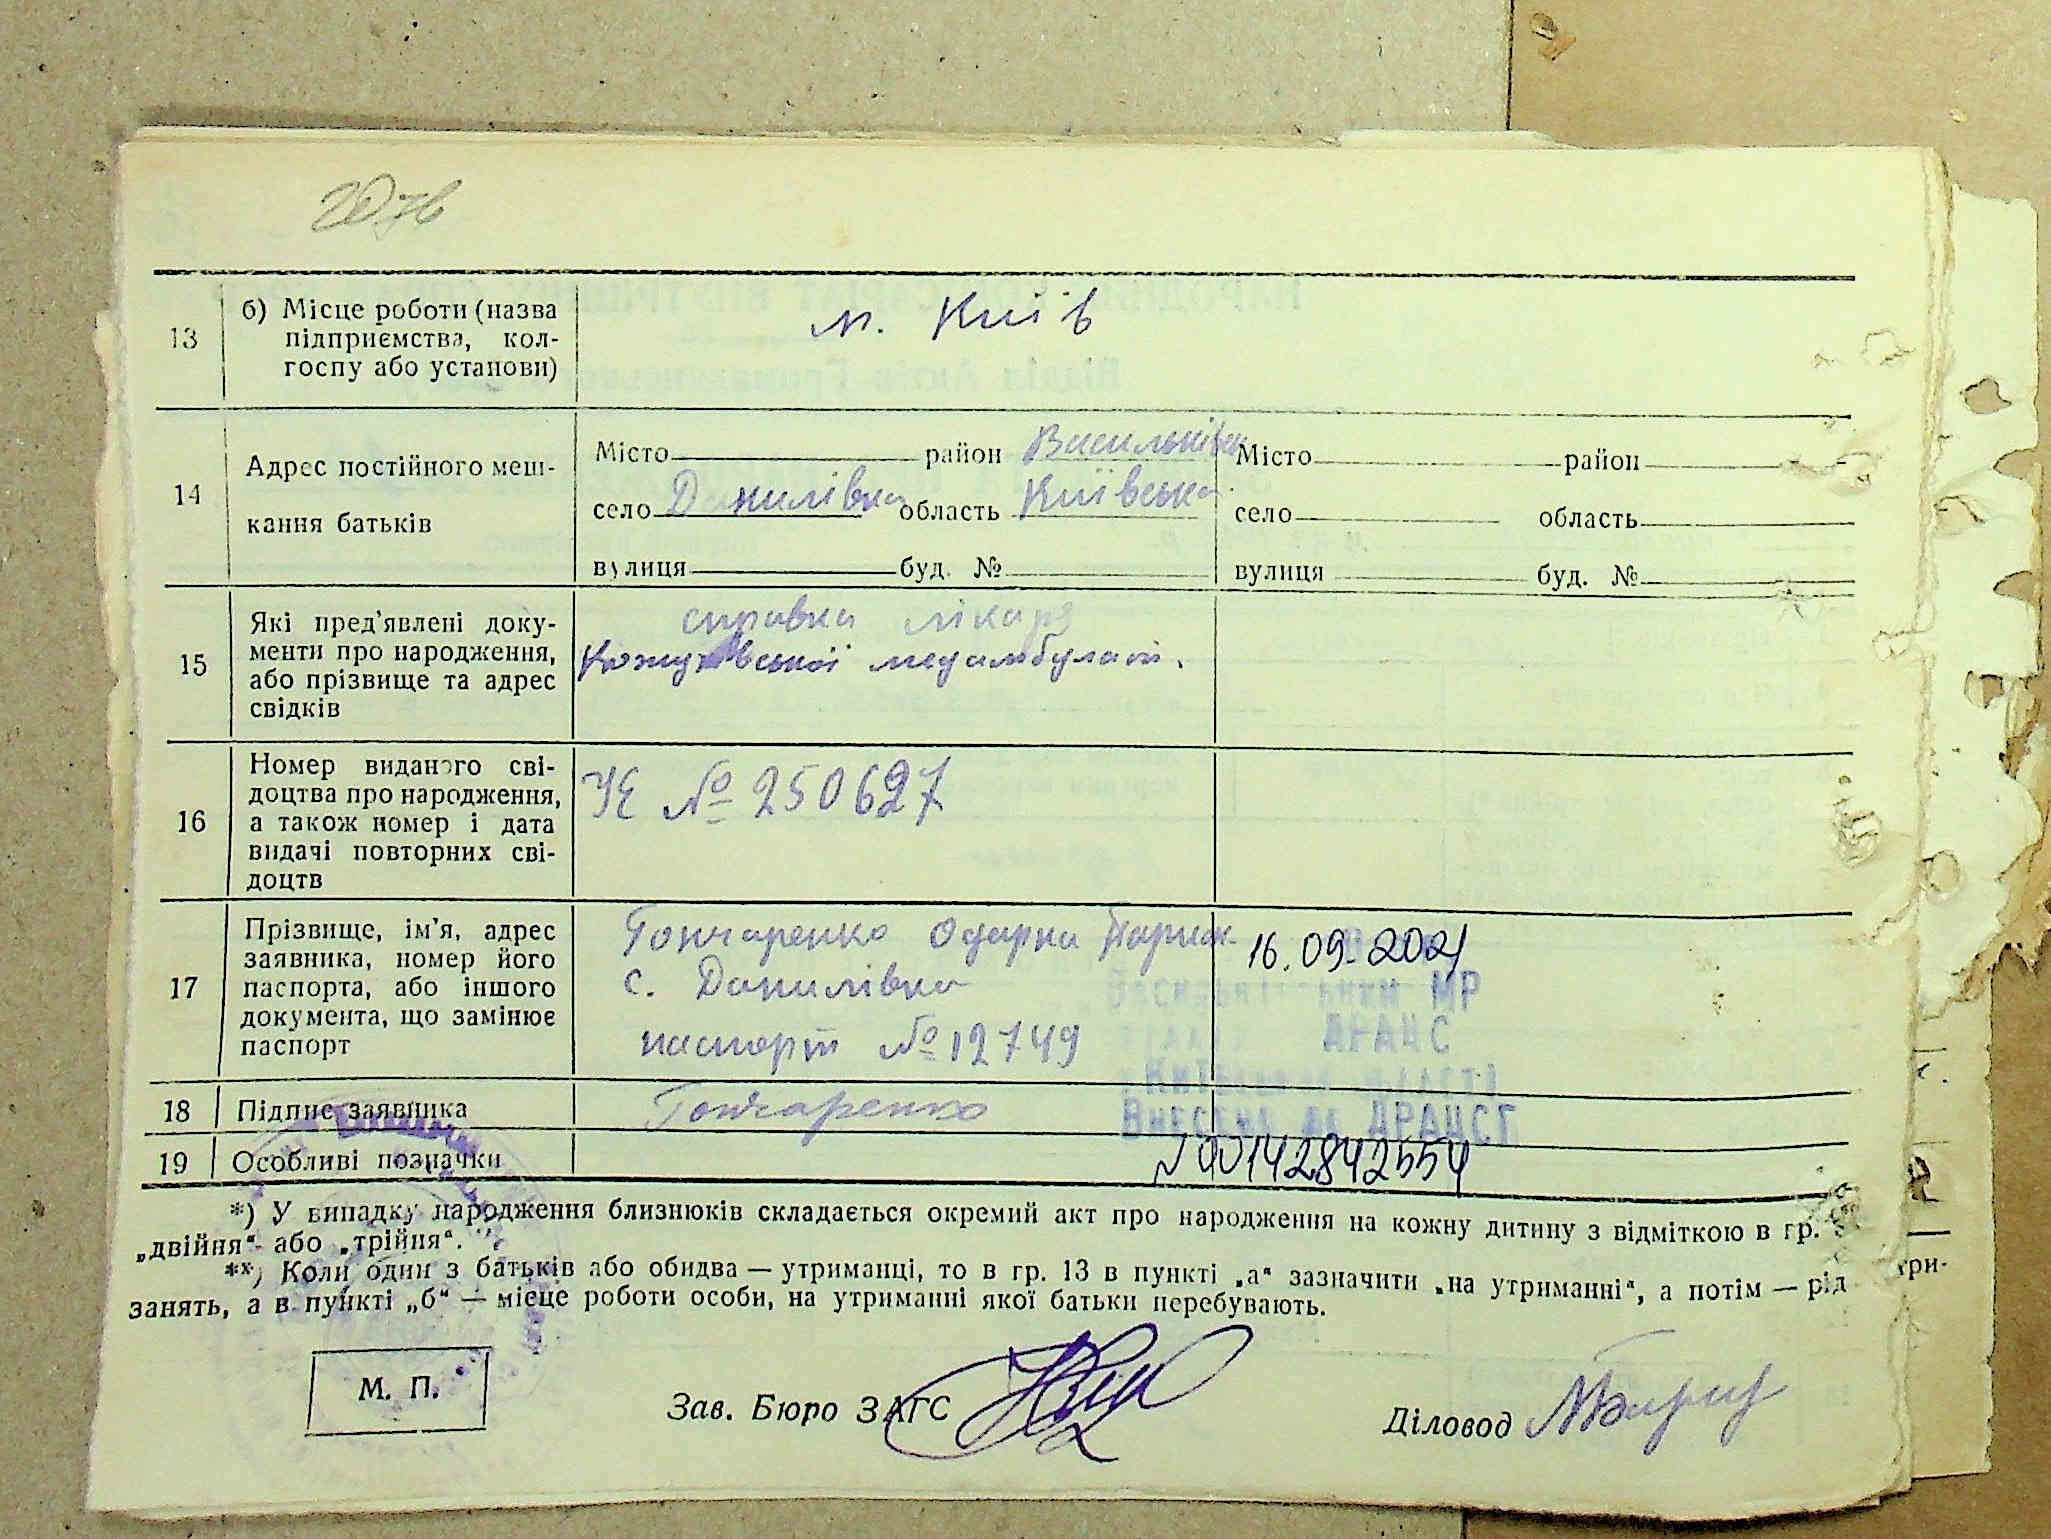 13
б) Місце роботи (назва
підприємства, кол-
госпу або установи)
м. Київ
14
Адрес постійного меш-
кання батьків
Місто район Васильків Місто район
село Данилівка область Київська село область
вулиця буд. № вулиця буд. №
15
Які пред'явлені доку-
менти про народження,
або прізвище та адрес
свідків
справка лікаря
медамбулат.
16
Номер виданого сві-
доцтва про народження,
а також номер і дата
видачі повторних сві-
доцтв
УЄ № 250627
17
Прізвище, ім'я, адрес
заявника, номер його
паспорта, або іншого
документа, що замінює
паспорт
Гончаренко Одарка
с. Данилівка
паспорт № 12749
16.09.2021
МР
ДРАЦС
Внесено до ДРАЦСГ
№00142842554
18 Підпис заявника Гончаренко
19 Особливі позначки
*) У випадку народження близнюків складається окремий акт про народження на кожну дитину з відміткою в гр. 3
„двійня“ або „трійня“.
**) Коли один з батьків або обидва — утриманці, то в гр. 13 в пункті „а“ зазначити „на утриманні“, а потім — рід
занять, а в пункті „б“ — місце роботи особи, на утриманні якої батьки перебувають.
М. П.
Зав. Бюро ЗАГС
Діловод